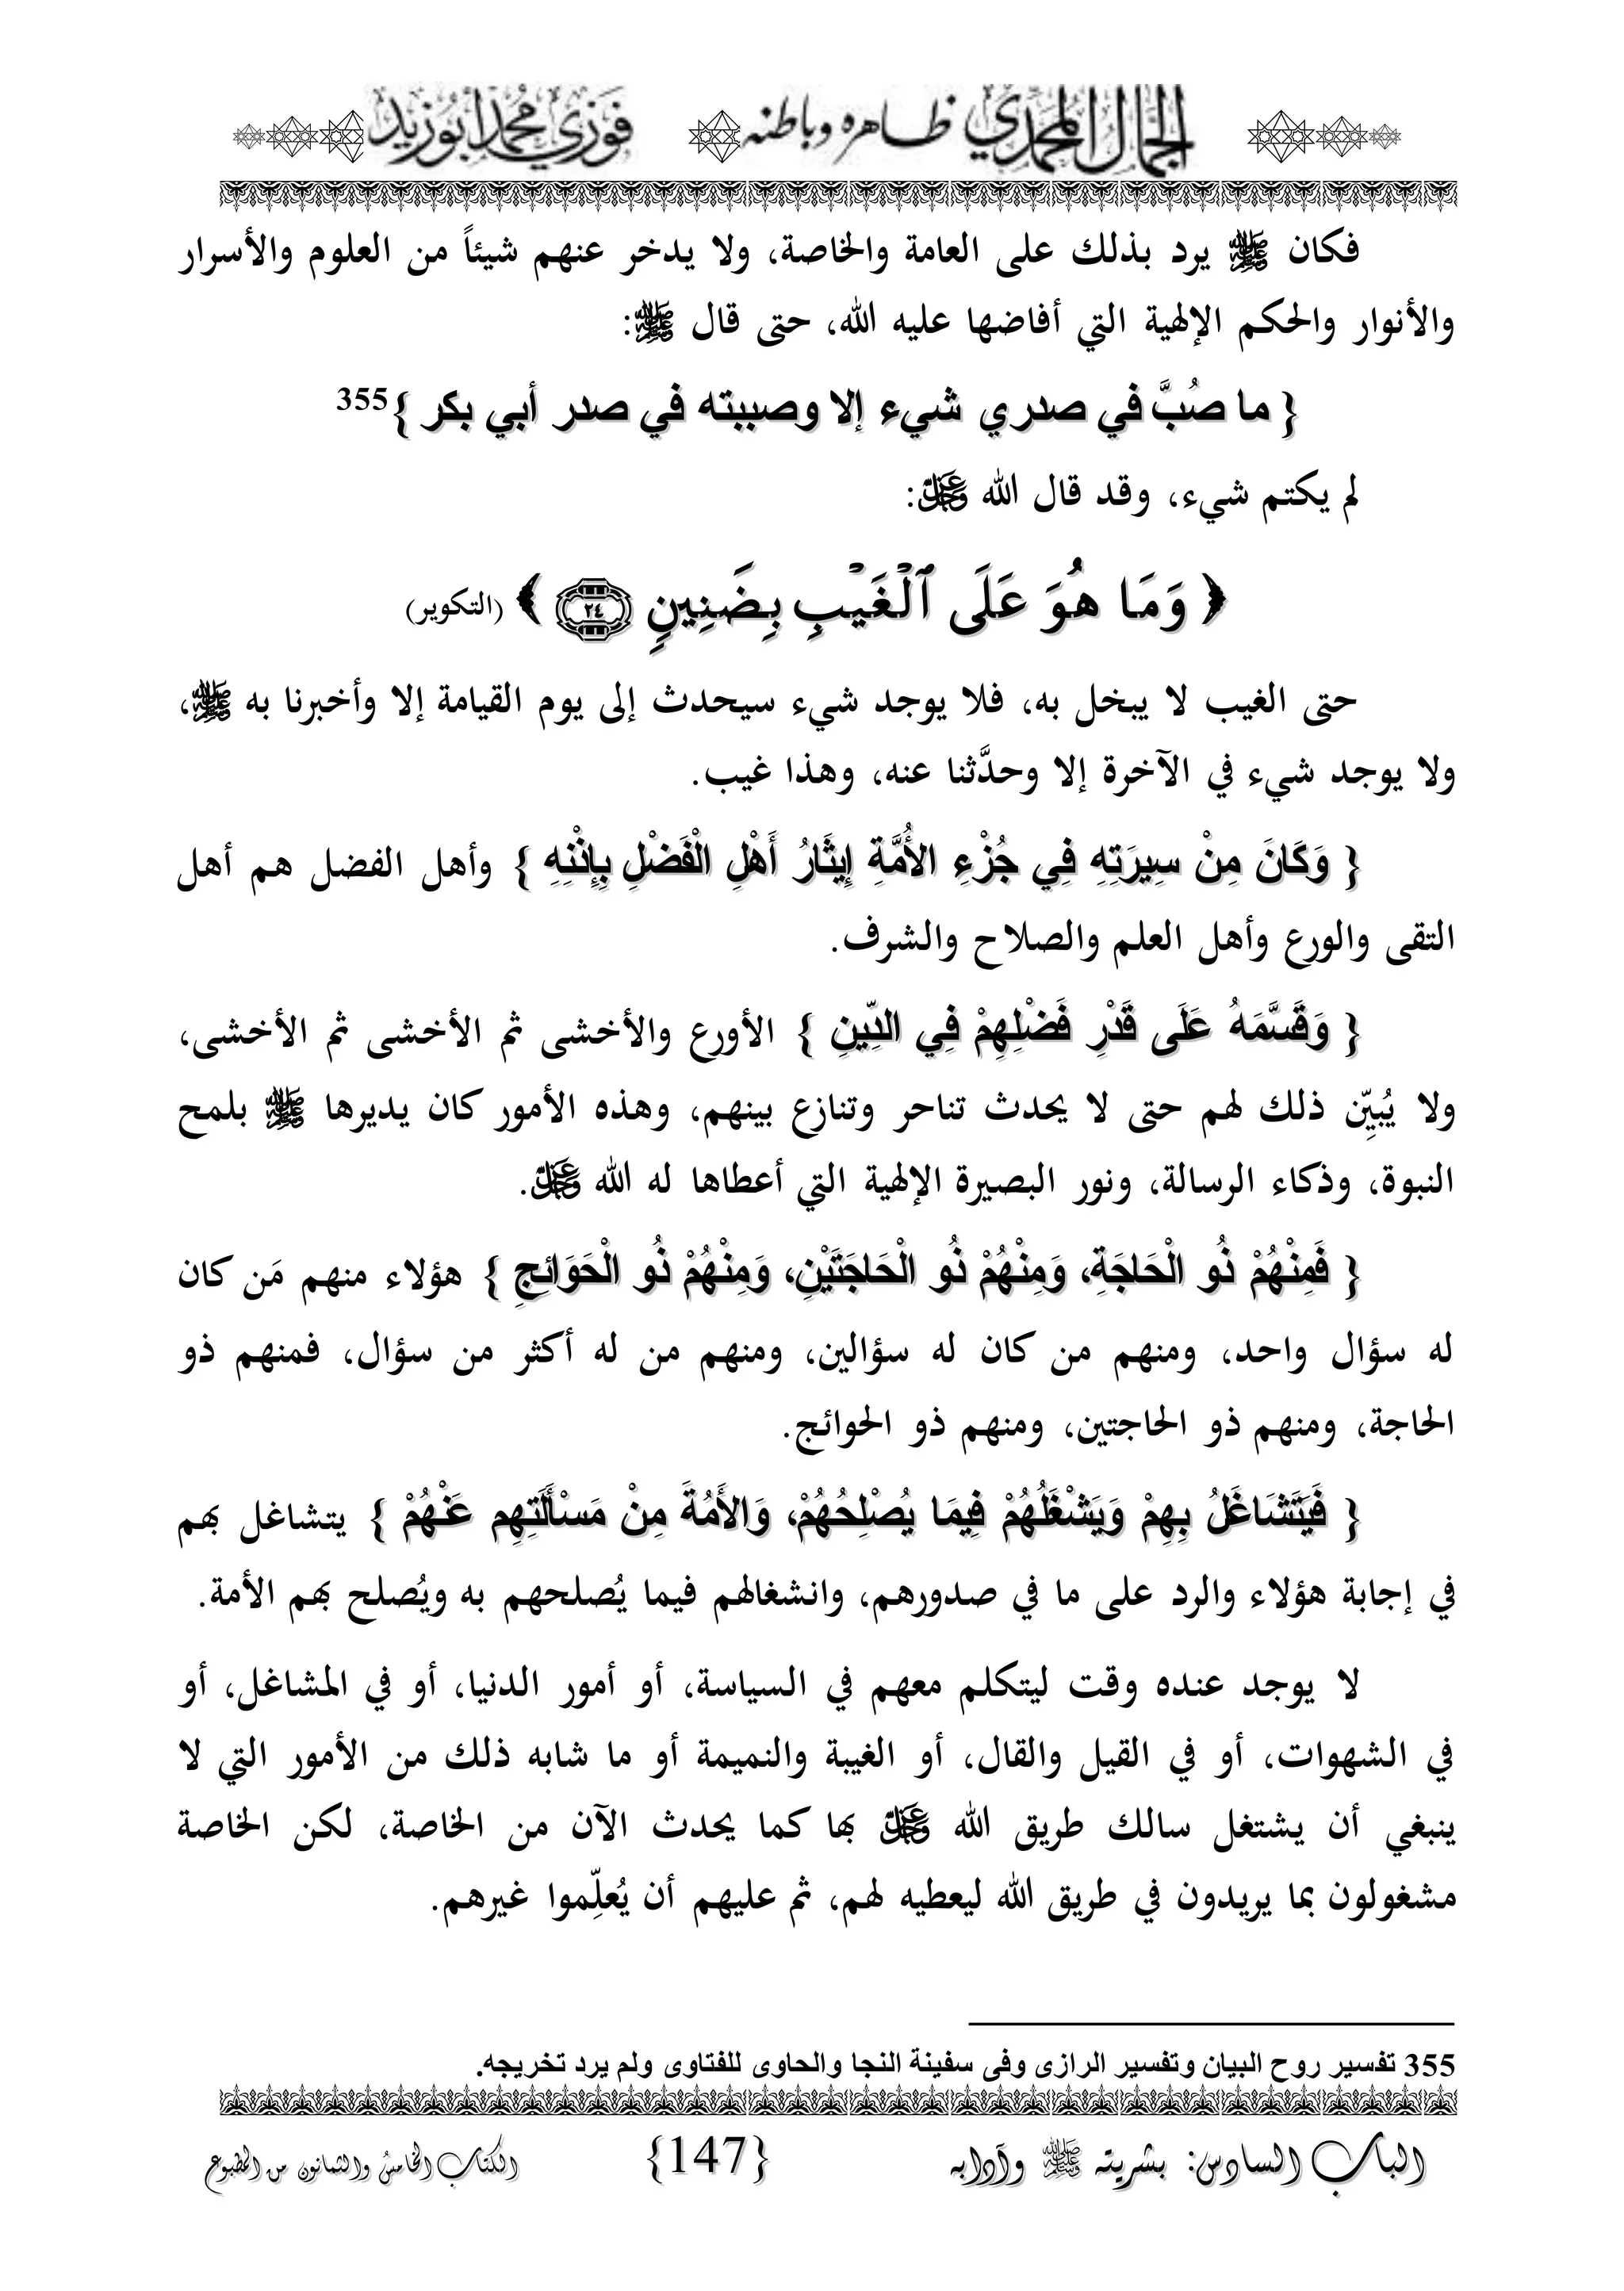 الجمال المحمدي ظاهره وباطنه فوزي محمد أبوزيد
فكان ﷺ يرد بذلك على العامة والخاصة، ولا يدخر عنهم شيئاً من العلوم والأسرار
والأنوار والحكم الإلهية التي أفاضها عليه الله، حتى قال ﷺ:
{ ما صُبَّ في صدري شيء إلا وصببته في صدر أبي بكر }355
لم يكتم شيء، وقد قال الله عز وجل:
﴿ وَمَا هُوَ عَلَى ٱلْغَيْبِ بِضَنِينٍ ٢٤ ﴾ (التكوير)
حتى الغيب لا يبخل به، فلا يوجد شيء سيحدث إلى يوم القيامة إلا وأخبرنا به ﷺ،
ولا يوجد شيء في الآخرة إلا وحدَّثنا عنه، وهذا غيب.
{ وَكَانَ مِنْ سِيرَتِهِ فِي جُزْءِ الأُمَّةِ إِيثَارُ أَهْلِ الْفَضْلِ بِإِذْنِهِ } وأهل الفضل هم أهل
التقى والورع وأهل العلم والصلاح والشرف.
{ وَقَسَّمَهُ عَلَى قَدْرِ فَضْلِهِمْ فِي الدِّينِ } الأورع والأخشى ثم الأخشى ثم الأخشى،
ولا يُبيِّن ذلك لهم حتى لا يحدث تناحر وتنازع بينهم، وهذه الأمور كان يديرها ﷺ بلمح
النبوة، وذكاء الرسالة، ونور البصيرة الإلهية التي أعطاها له الله عز وجل.
{ فَمِنْهُمْ ذُو الْحَاجَةِ، وَمِنْهُمْ ذُو الْحَاجَتَيْنِ، وَمِنْهُمْ ذُو الْحَوَائِجِ } هؤلاء منهم مَن كان
له سؤال واحد، ومنهم من كان له سؤالين، ومنهم من له أكثر من سؤال، فمنهم ذو
الحاجة، ومنهم ذو الحاجتين، ومنهم ذو الحوائج.
{ فَيَتَشَاغَلُ بِهِمْ وَيَشْغَلُهُمْ فِيمَا يُصْلِحُهُمْ، وَالأُمَةَ مِنْ مَسْأَلَتِهِم عَنْهُمْ } يتشاغل بهم
في إجابة هؤلاء والرد على ما في صدورهم، وانشغالهم فيما يُصلحهم به ويُصلح بهم الأمة.
لا يوجد عنده وقت ليتكلم معهم في السياسة، أو أمور الدنيا، أو في المشاغل، أو
في الشهوات، أو في القيل والقال، أو الغيبة والنميمة أو ما شابه ذلك من الأمور التي لا
ينبغي أن يشتغل سالك طريق الله عز وجل بها كما يحدث الآن من الخاصة، لكن الخاصة
مشغولون بما يريدون في طريق الله ليعطيه لهم، ثم عليهم أن يُعلِّموا غيرهم.
355 تفسير روح البيان وتفسير الرازى وفى سفينة النجا والحاوى للفتاوى ولم يرد تخريجه.
الباب السادس: بشريته ﷺ وآدابه {147} الكتاب الخامس والثمانون من المطبوع